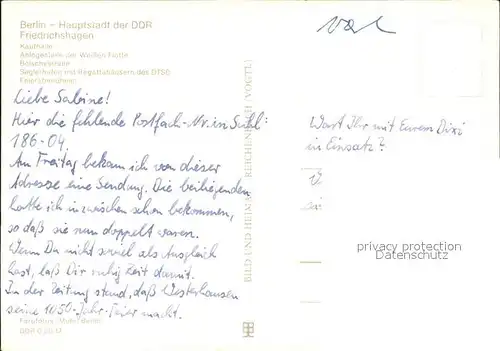 Berlin – Hauptstadt der DDR
Friedrichshagen
Kaufhalle
Anlegestelle der Weißen Flotte
Bölschestraße
Segelhafen mit Regattahäusern des DTSB
Feierabendheim
Liebe Sabine!
Hier die fehlende Postfach-Nr. in Suhl:
186-04.
Am Freitag bekam ich von dieser
Adresse eine Sendung. Die beiliegenden
hatte ich inzwischen schon bekommen,
so daß sie nun doppelt waren.
Wenn Du nicht soviel als Ausgleich
hast, laß Dir ruhig Zeit damit.
In der Zeitung stand, daß Westerhausen
seine 1050-Jahr-Feier macht.
BILD UND HEIMAT REICHENBACH (VOGTL)
Wart Ihr mit Eurem Dixi
in Einsatz?
privacy protection
Datenschutz